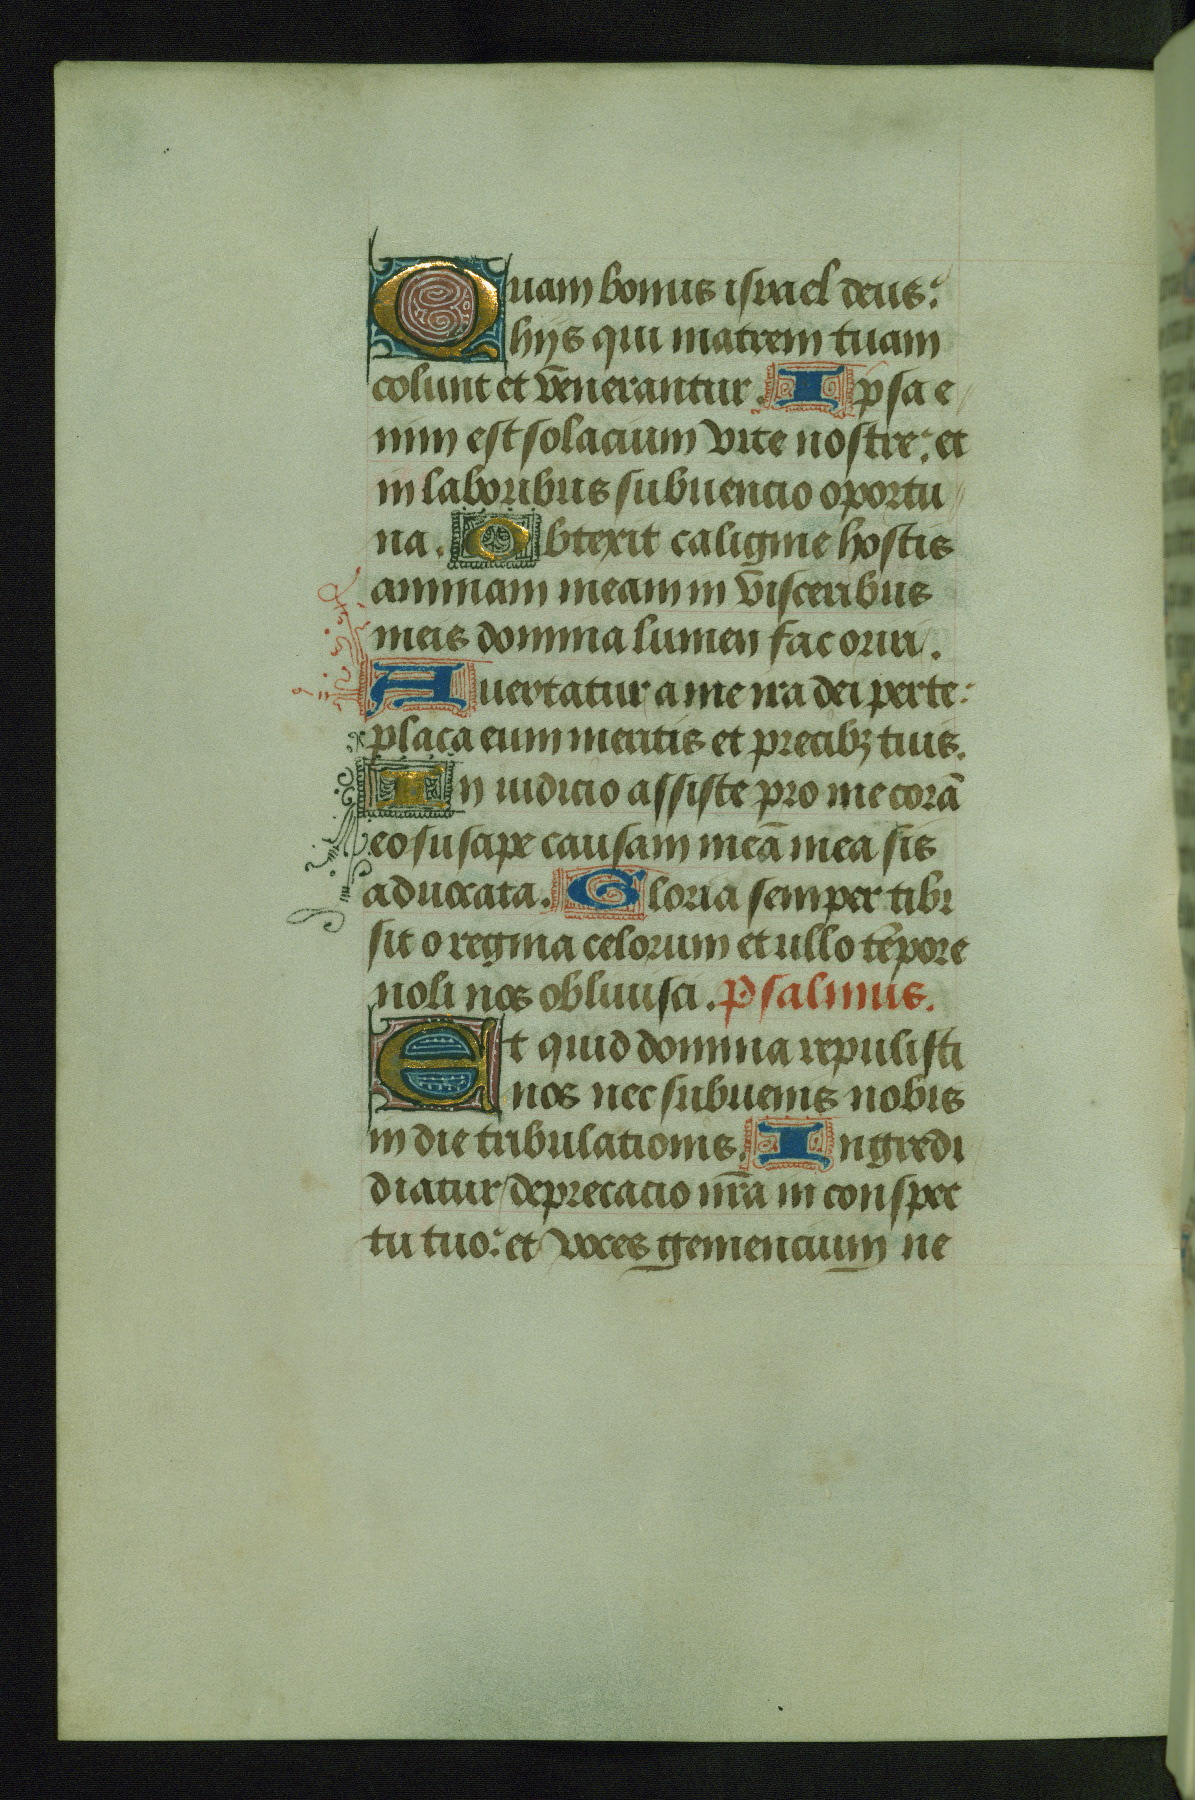 Quam bonus israel deus:
hijs qui matrem tuam
colunt et venerantur. Ipsa e
nim est solacium vite nostre: et
in laboribus subuencio oportu
na. Obtexit caligine hostis
animam meam in visceribus
meis domina lumen fac oriri.
Auertatur a me ira dei per te:
placa eum meritis et precibꝫ tuis.
In iudicio assiste pro me corā
eo suscipe causam meā mea sis
aduocata. Gloria semper tibi
sit o regina celorum et ullo tēpore
noli nos obliuisci. Psalmus.
Et quid domina repulisti
nos nec subuenis nobis
in die tribulationis. Ingredi
diatur deprecacio nr̄a in conspec
tu tuo: et voces gemencium ne